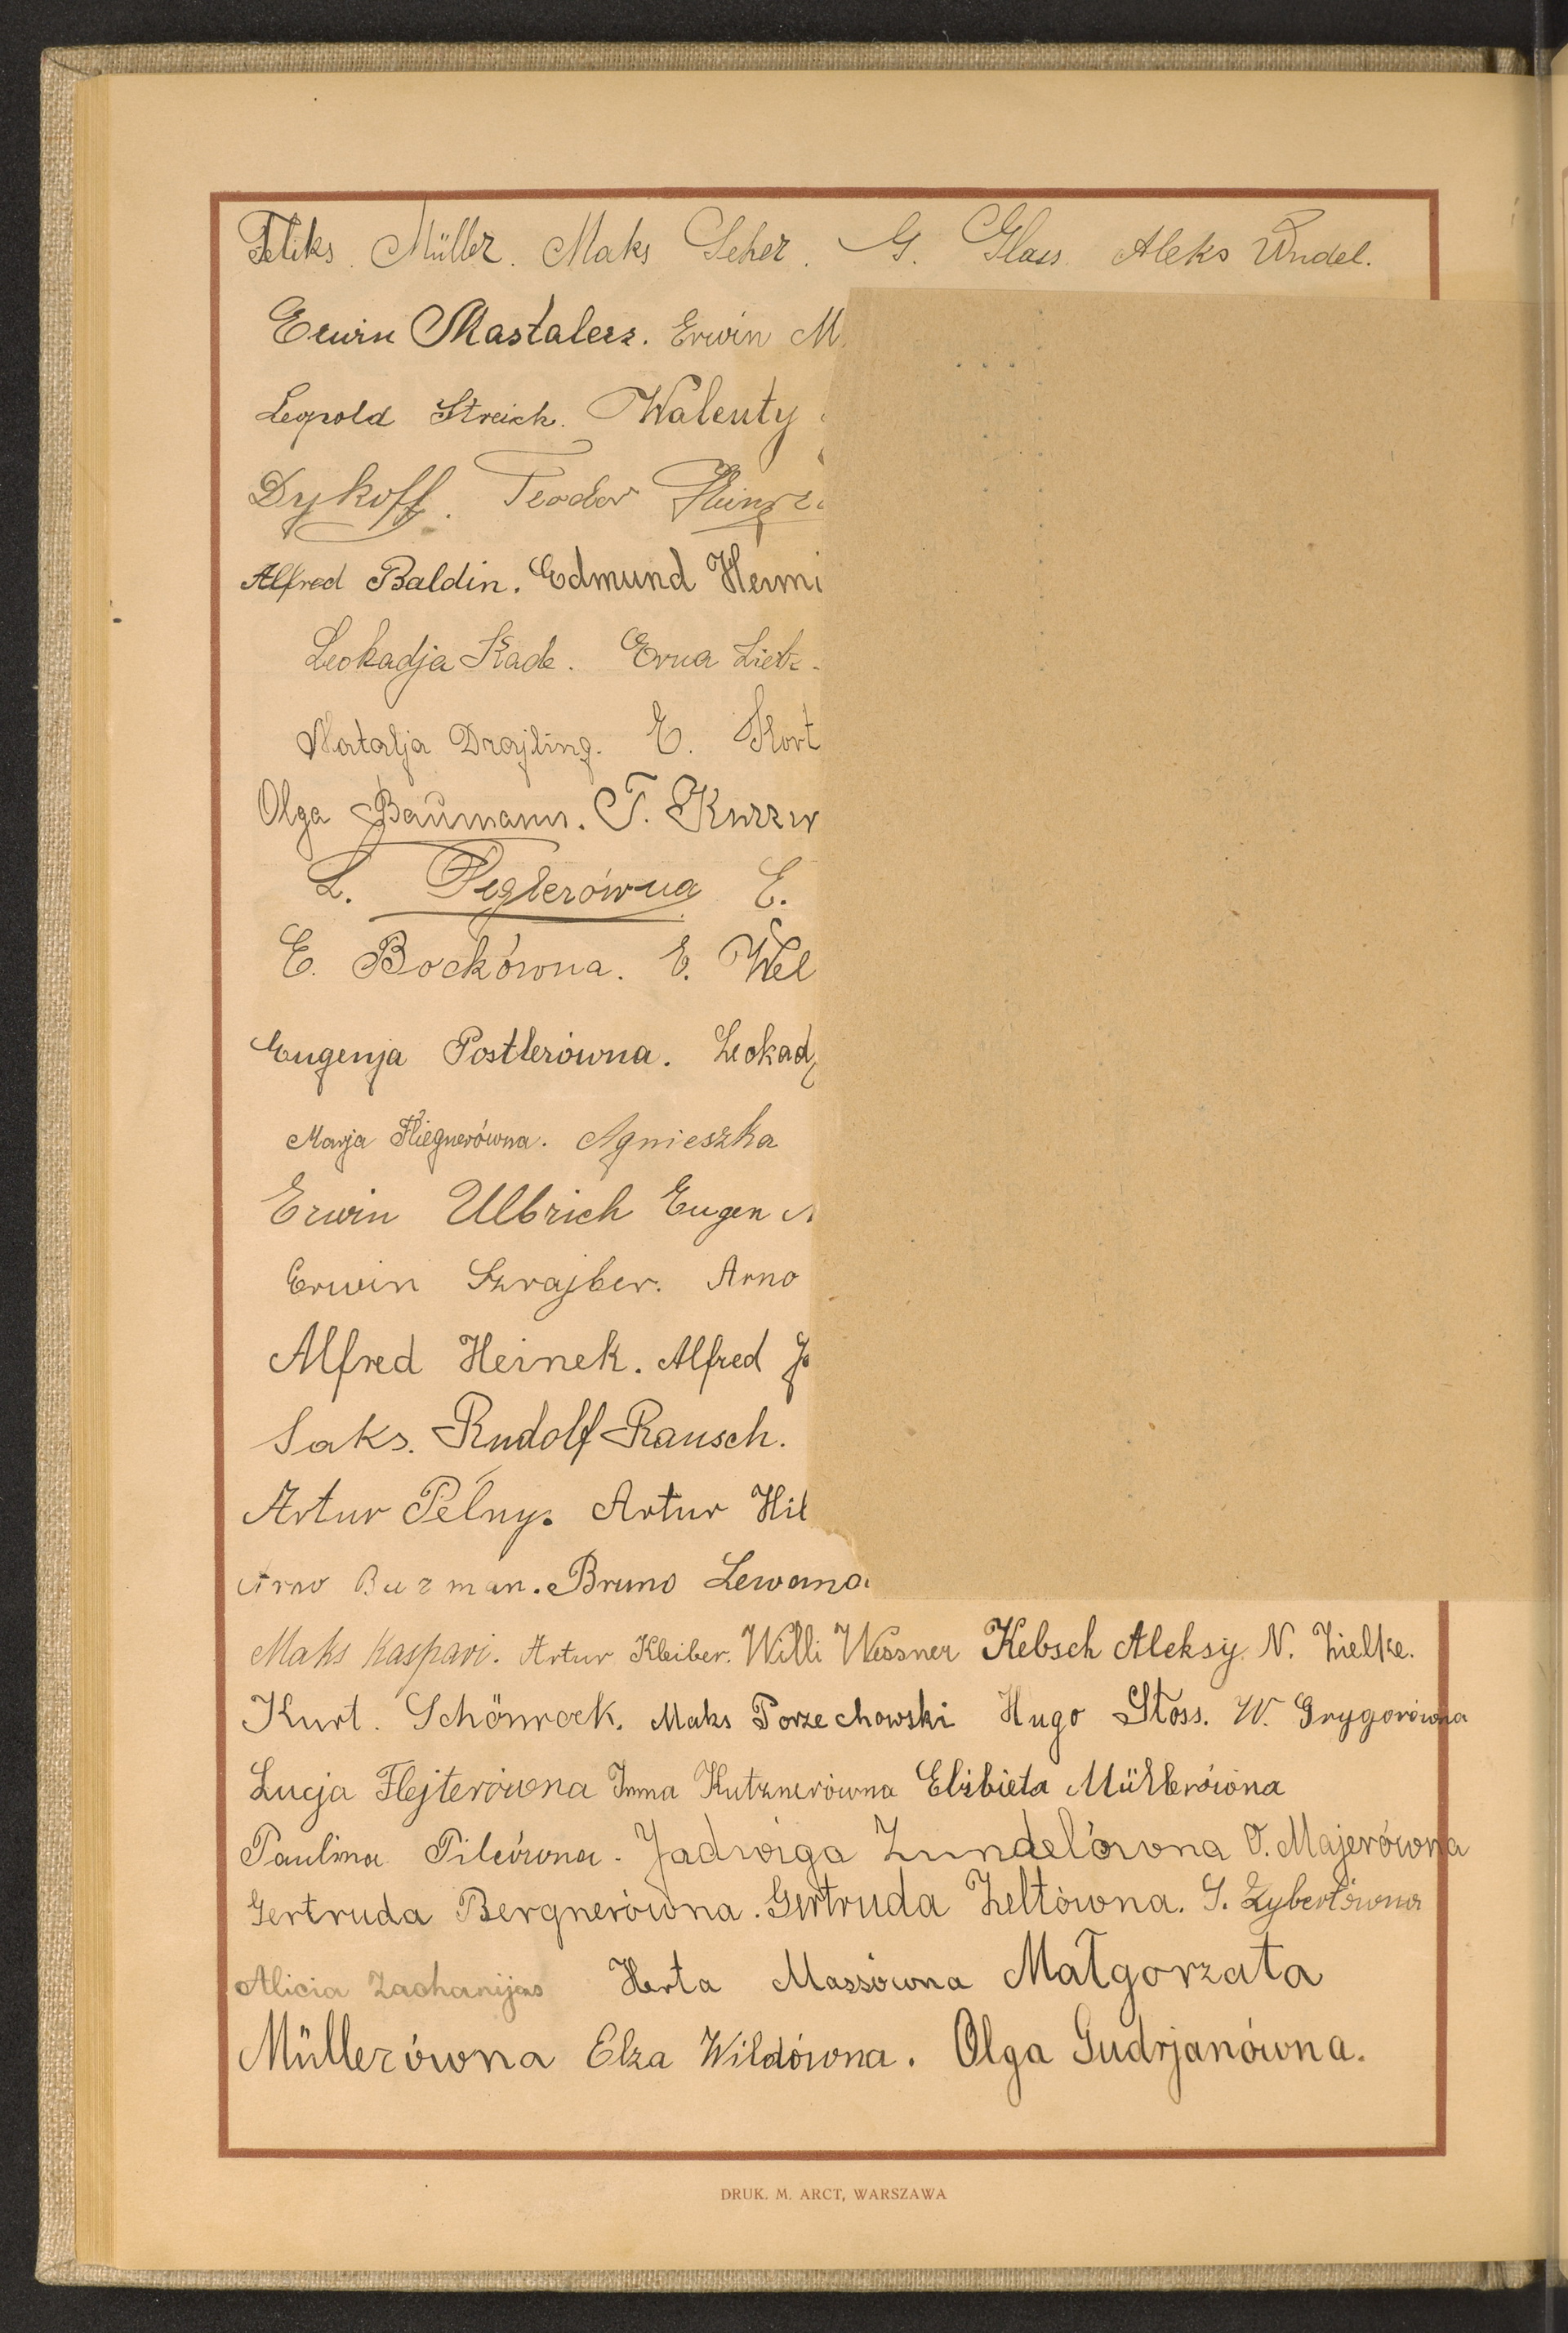 Feliks Müller. Maks Seher. G. Glass Aleks Windel.
Erwin Mastalerz. Erwin M
Leopold Streich. Walenty
Dykoff. Teodor
Alfred Baldin. Edmund Hermi
Leokadja Kade. Erna Lieb
Natalja Drajling. E. Kort
Olga Baumann. T. Kurzw
L. Peglerówna E.
E. Bockówna. E. Wel
Eugenja Postlerówna. Leokad
Marja Fliegnerówna. Agnieszka
Erwin Ulbrich Eugen
Erwin Szrajber. Arno
Alfred Heinek. Alfred
Saks. Rudolf Rausch.
Artur Pelny. Artur Hil
Arno Buzman. Bruno Lewana
Maks Kaspari. Artur Kleiber. Willi Wessner Kebsch Aleksy. N. Zielke.
Kurt. Schönrock. Maks Porzechowski Hugo Stoss. W. Grygorówna
Lucja Flejterówna Irma Kutznerówna Elżbieta Müllerówna
Paulina Pilcówna. Jadwiga Zundelówna O. Majerówna
Gertruda Bergnerówna. Gertruda Zeltówna. S. Zybertówna
Alicia Zachanijas Herta Massówna Małgorzata
Müllerówna Elza Wildówna. Olga Gudrjanówna.
DRUK. M. ARCT, WARSZAWA